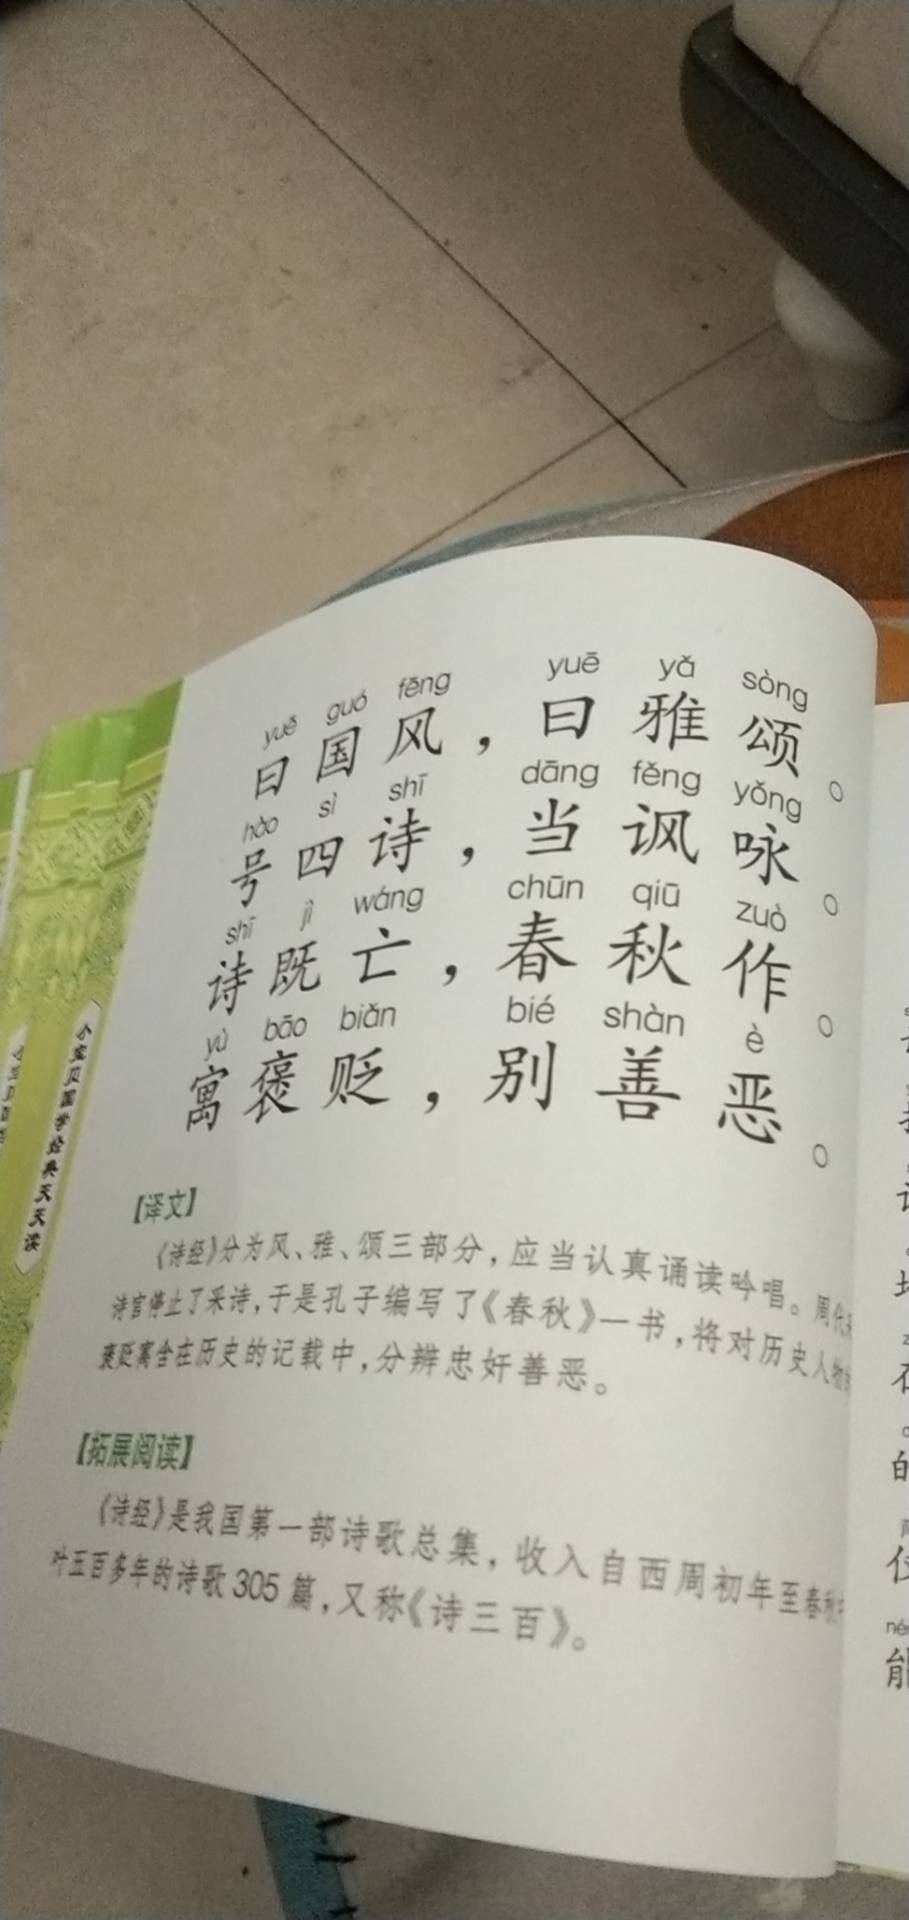 yuē guó fēng yuē yǎ sòng
曰国风，曰雅颂。
hào sì shī dāng fěng yǒng
号四诗，当讽咏。
shī jì wáng chūn qiū zuò
诗既亡，春秋作。
yù bāo biǎn bié shàn è
寓褒贬，别善恶。
【译文】
《诗经》分为风、雅、颂三部分，应当认真诵读吟唱。周代
诗官停止了采诗，于是孔子编写了《春秋》一书，将对历史人物
褒贬寓含在历史的记载中，分辨忠奸善恶。
【拓展阅读】
《诗经》是我国第一部诗歌总集，收入自西周初年至春秋中
叶五百多年的诗歌305篇，又称《诗三百》。
小宝贝国学经典天天读
能